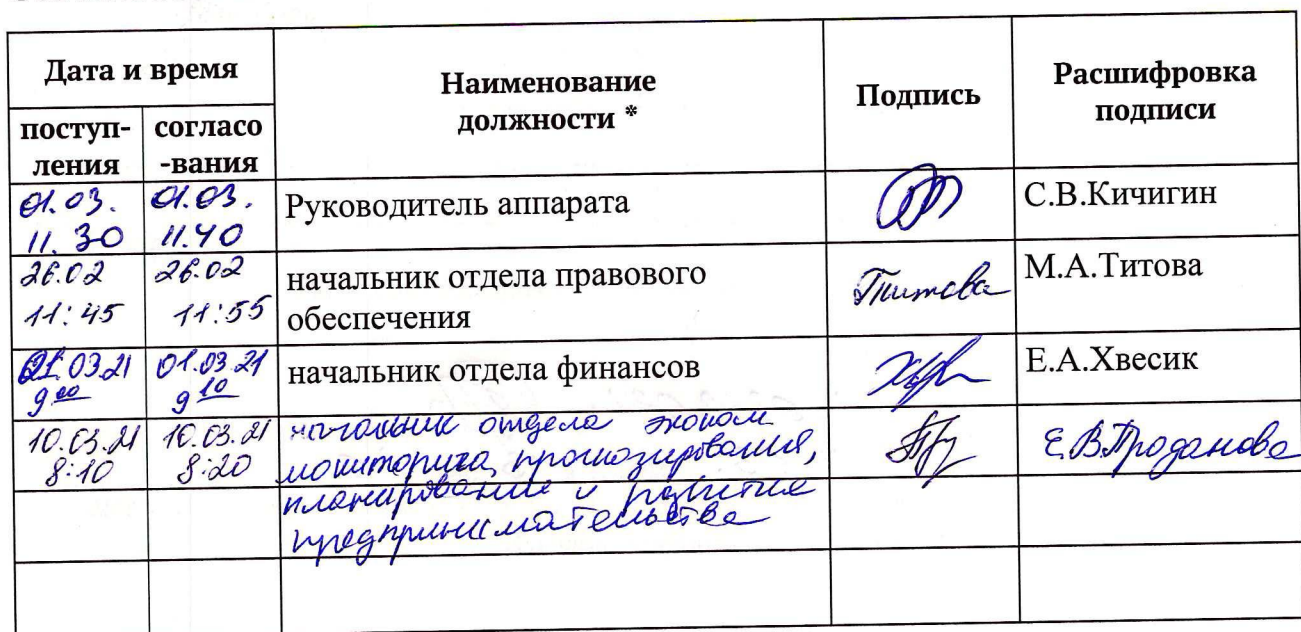 Дата и время
Наименование
должности *
Подпись
Расшифровка
подписи
поступ-
ления
согласо
-вания
01.03.
11.30
01.03.
11.40
Руководитель аппарата
С.В.Кичигин
26.02
11:45
26.02
11:55
начальник отдела правового
обеспечения
Титова
М.А.Титова
01.03.21
9 00
01.03.21
9 10
начальник отдела финансов
Е.А.Хвесик
10.03.21
8:10
10.03.21
8:20
начальник отдела эконом
мониторинга, прогнозирования,
планирования и развития
предпринимательства
Е.В.Проданова